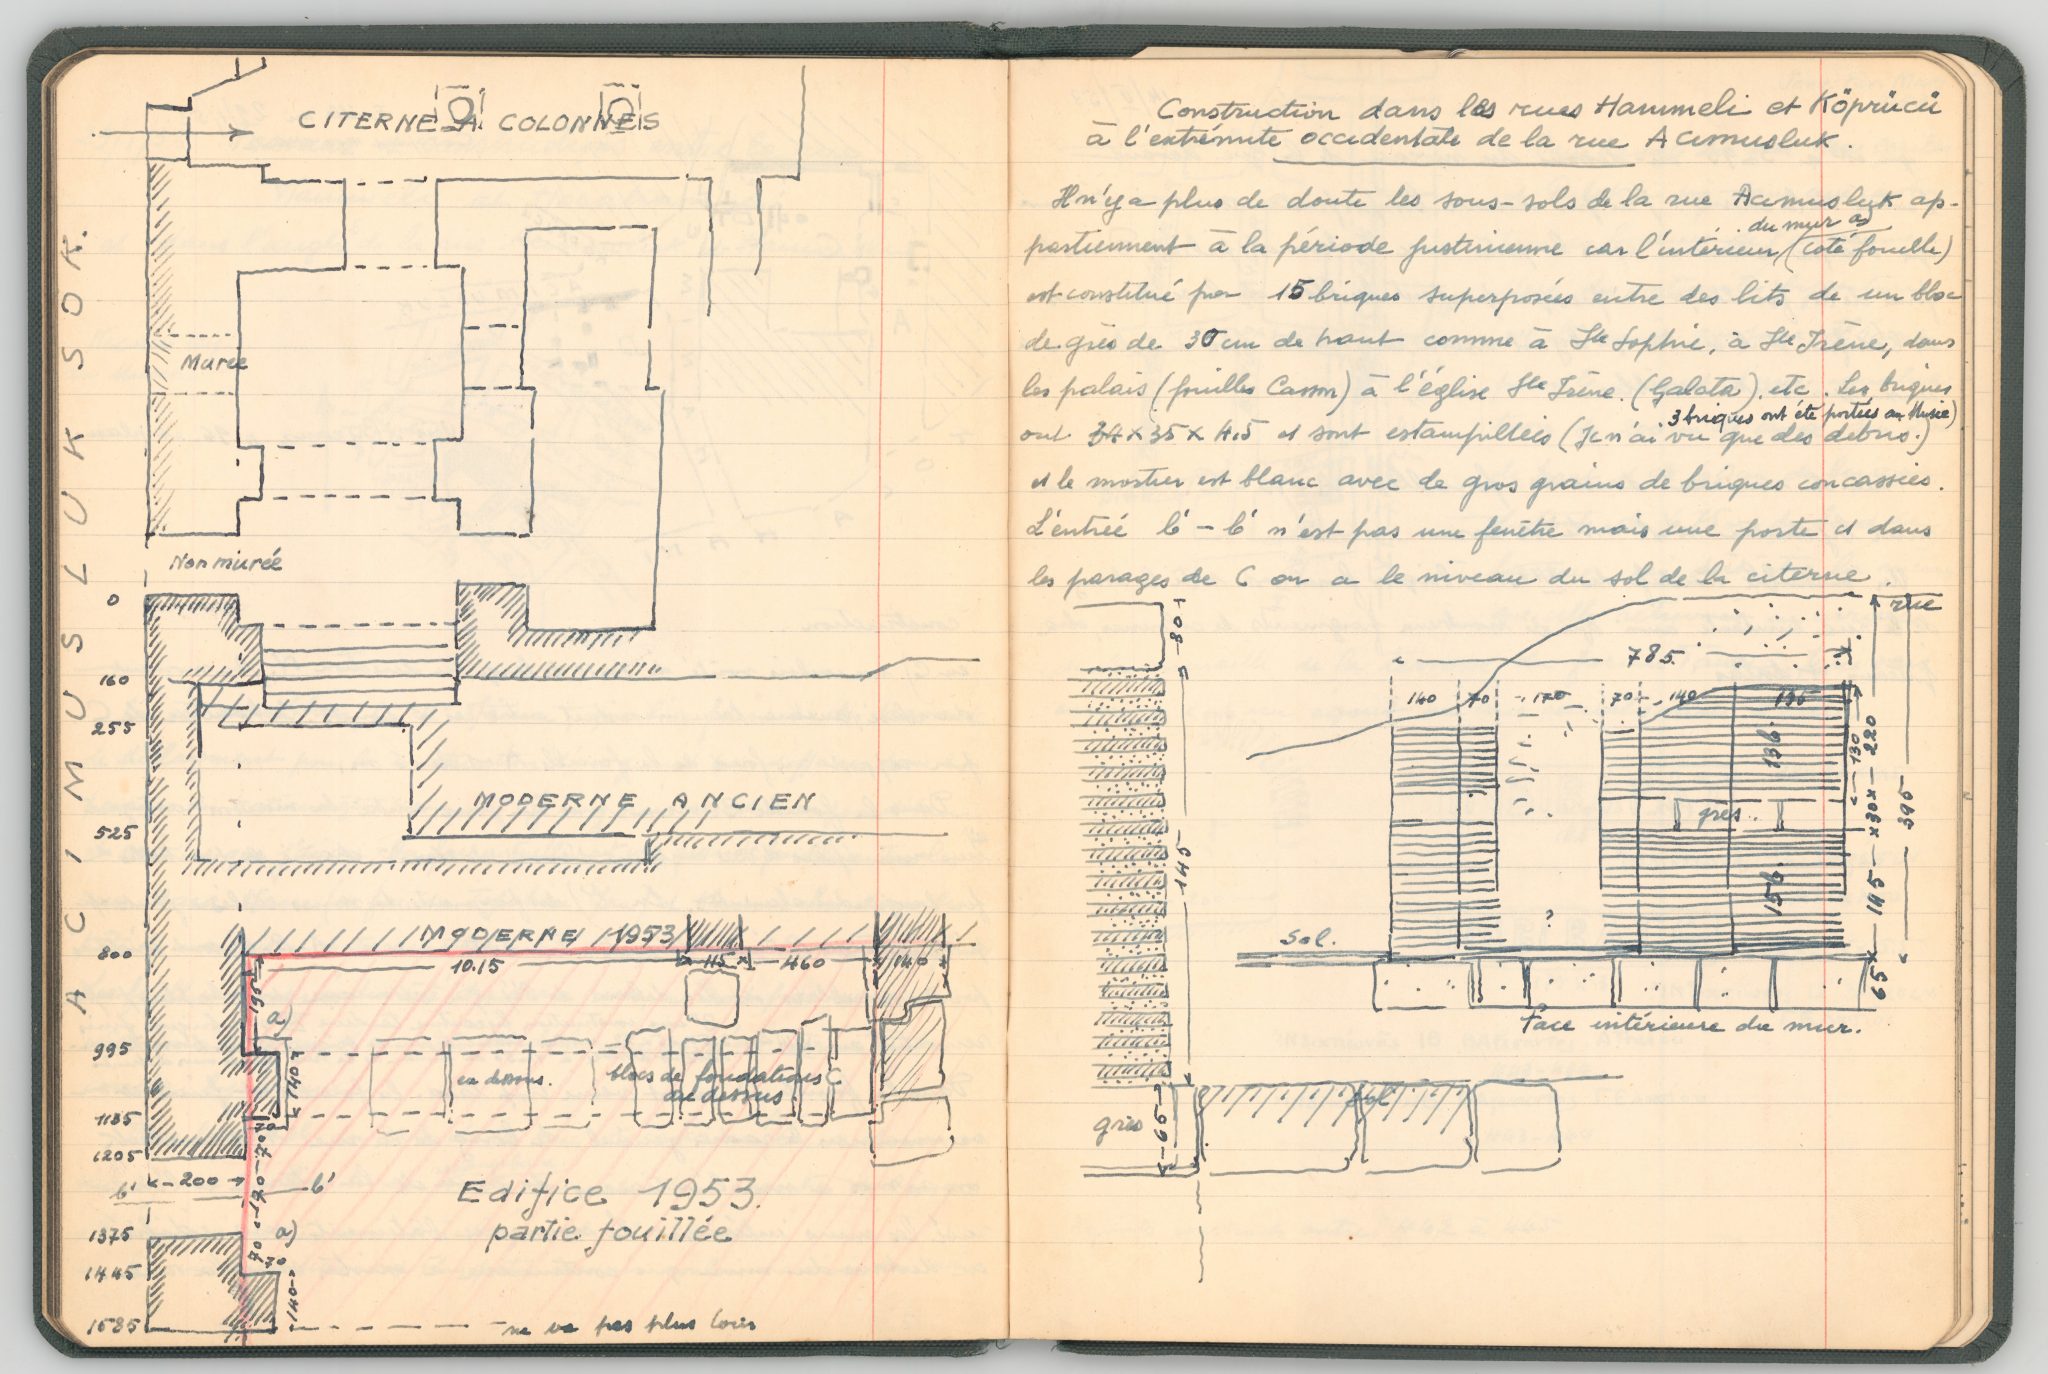 CITERNE A COLONNES
ACIMUSLUK SOK.
Murée
Non murée
0
160
255
MODERNE ANCIEN
525
MODERNE 1953
800
10.15
115
460
140
195
a)
995
140
en dessous.
blocs de fondations C
au dessus.
1135
70
1205
70
200
b' b'
170
Edifice 1953.
partie fouillée
1375
a)
70
70
1445
140
1585
ne va pas plus loin
Construction dans les rues Hammeli et Köprücü
à l'extrémité occidentale de la rue Acımusluk.
Il n'y a plus de doute les sous-sols de la rue Acımusluk ap-
du mur as
partiennent à la période justinienne car l'intérieur, (coté fouille)
est constitué par 15 briques superposées entre des lits de un bloc
de grès de 30 cm de haut comme à Ste Sophie, à Ste Irène, dans
les palais (fouilles Casson) à l'église Ste Irène (Galata). etc. Les briques
3 briques ont été portées au Musée)
ont 34 x 35 x 4.5 et sont estampillées (Je n'ai vu que des débris.)
et le mortier est blanc avec de gros grains de briques concassées.
L'entrée b' – b' n'est pas une fenêtre mais une porte et dans
les parages de C on a le niveau du sol de la citerne.
80
rue
785.
140 70 170 70 140 195
13b.
130
220
grès.
30
395
145
15b.
145
?
Sol.
65
face intérieure du mur.
grès
65
Sol